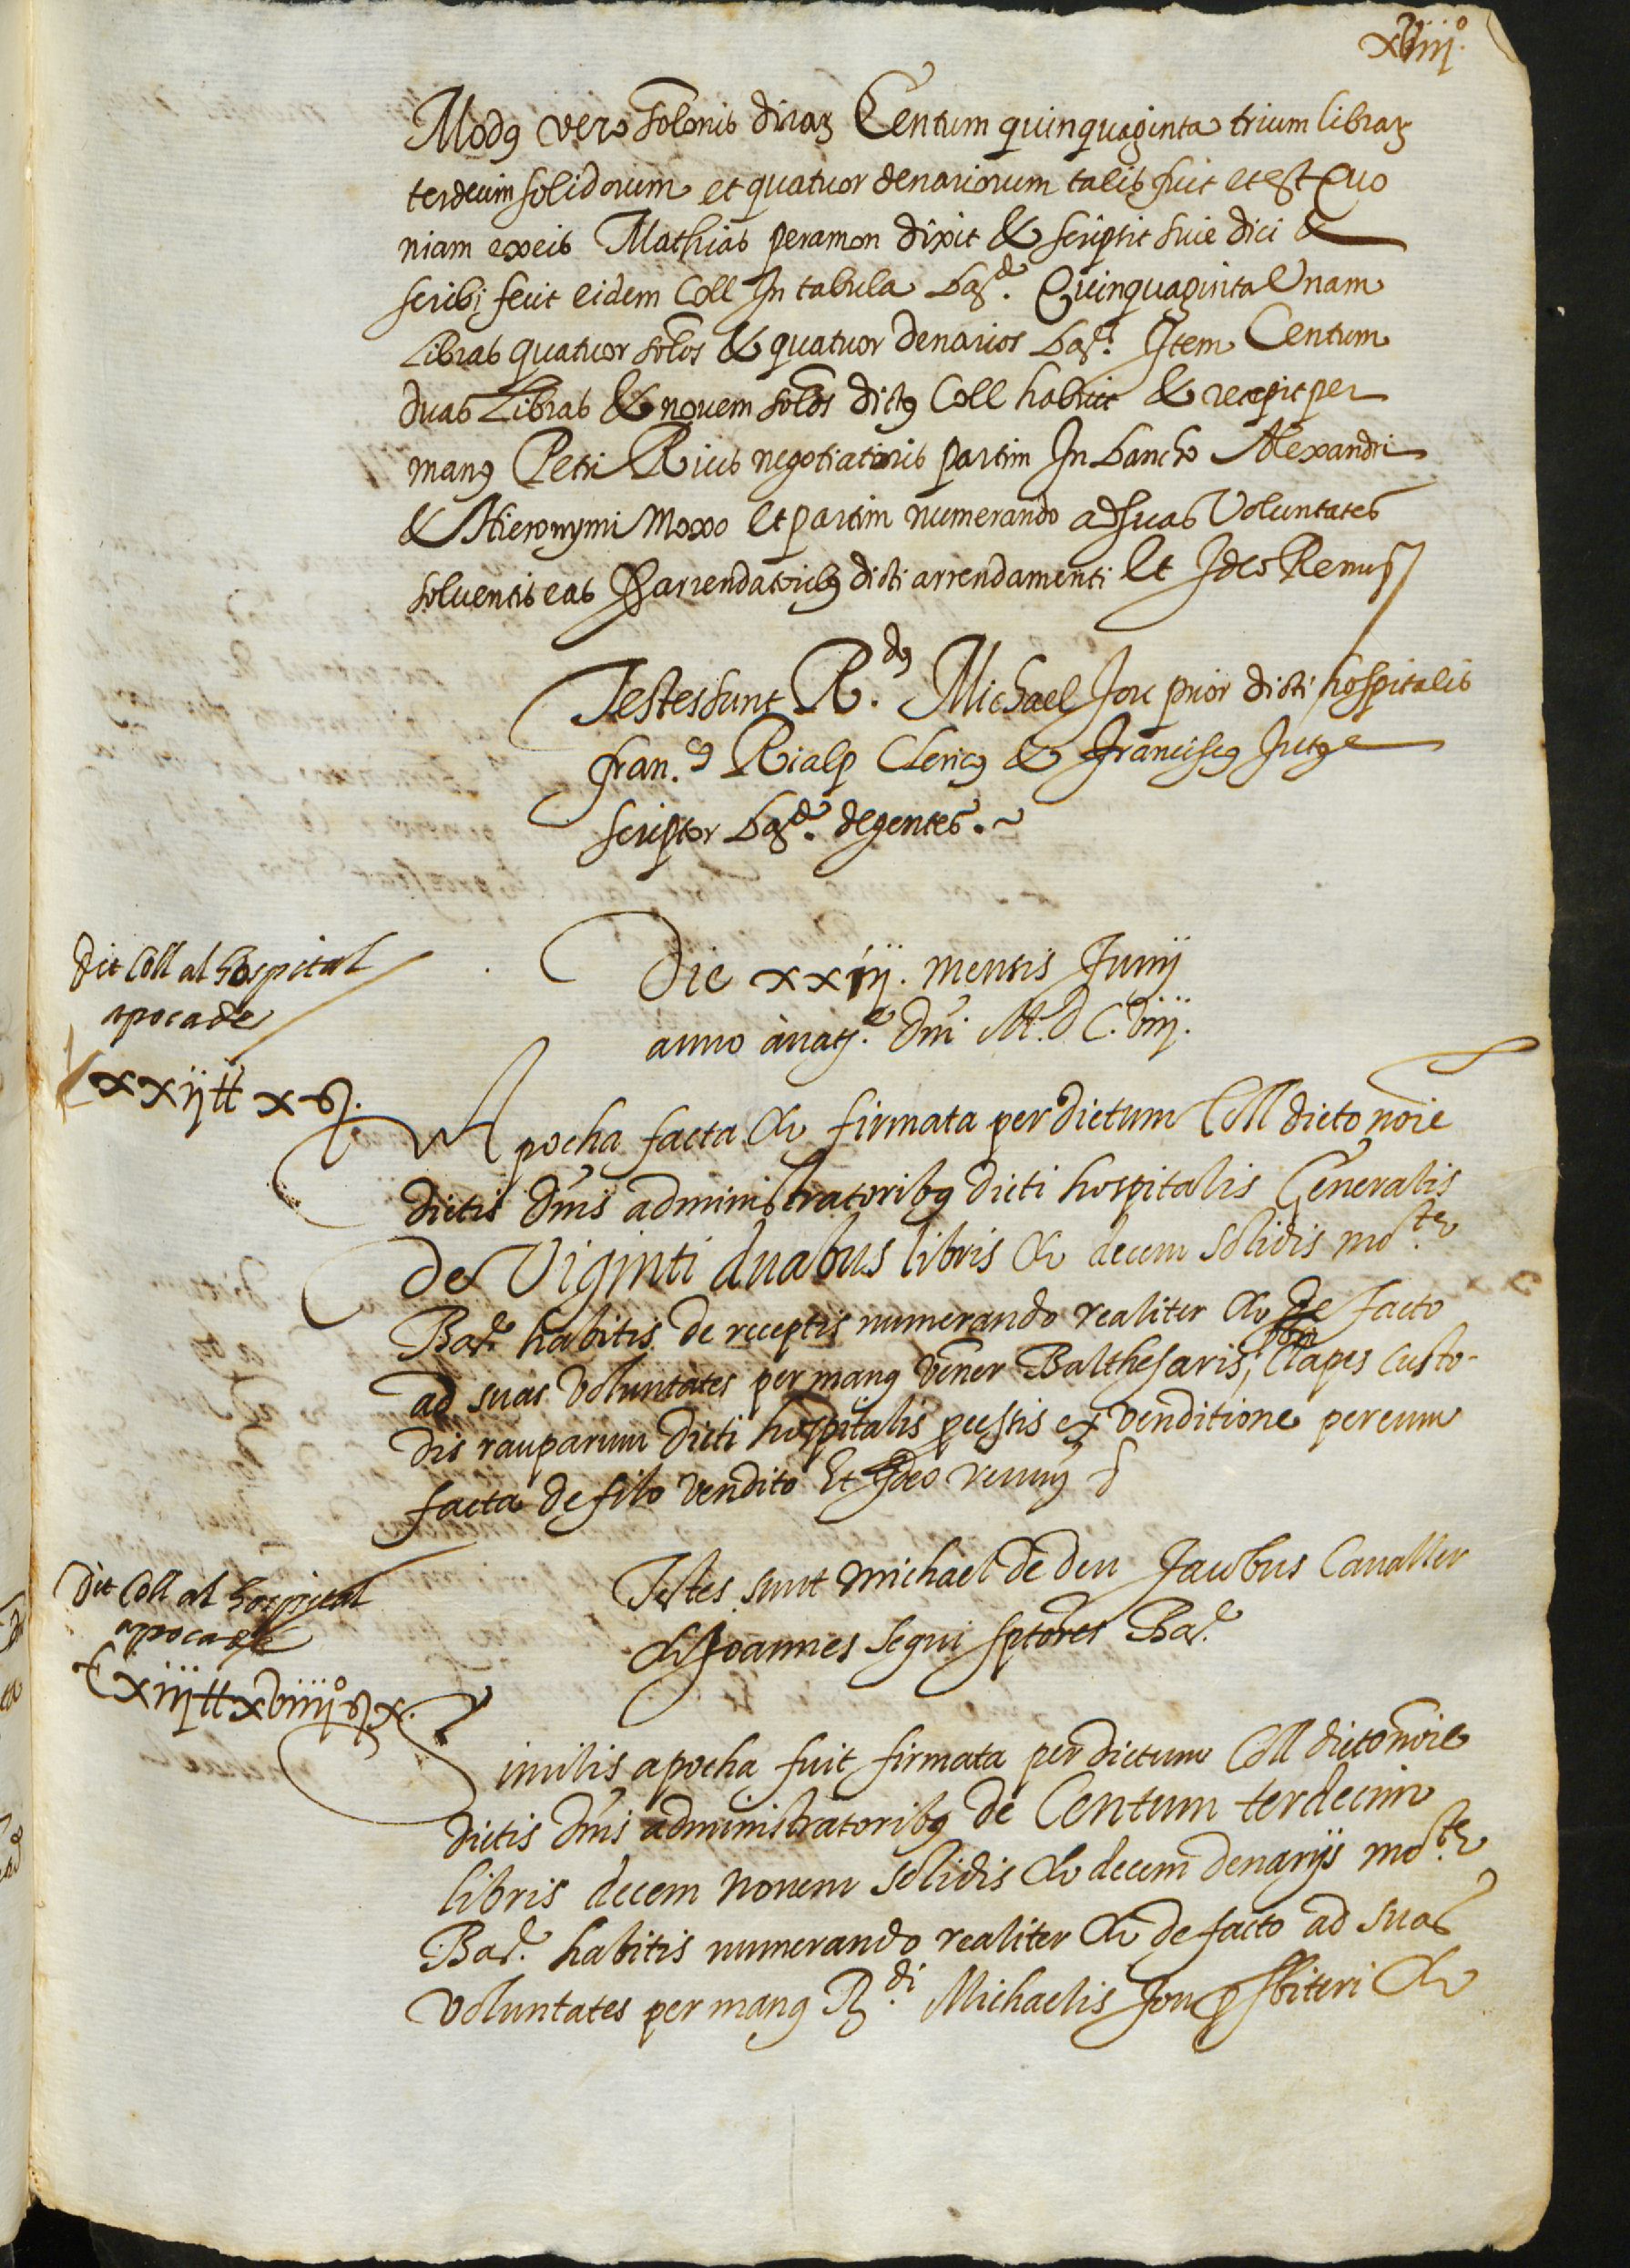 xviiij.º
Modꝯ vero solonis dictaꝝ Centum quinquaginta trium libraꝝ
terdecim solidorum et quatuor denariorum talis fuit et est Quo
niam ex eis Mathias peramon dixit & scripsit sive dici &
scribi fecit eidem Coll In tabula Baꝛ.ᵉ Quinquaginta Unam
Libras quatuor solos & quatuor denarios Baꝛ.ᵉ Item Centum
duas Libras & novem solos dictꝯ Coll habuit & recepit per
manꝯ Petri Rius negotiatoris partim In bancho Alexandri
& Hieronymi Moxo et partim numerando ad suas Voluntates
solventis eas ꝓ arrendatoribꝯ dicti arrendamenti Et Ideo Renuꝭ
Testes sunt R.dꝯ Michael Jou prior dicti hospitalis
fran.cꝯ Rialp Clericꝯ & Franciscꝯ Jutge
scriptor Baꝛ.ᵉ degentes.~
Dit Coll al hospital
apoca de
xxij ℔ x ß.
Die xxiij. mensis Junij
anno a nat.ᵉ Dñi M.D.C.viiij.
Apocha facta & firmata per dictum Coll dicto noie
dictis dñis administratoribꝯ dicti hospitalis Generalis
de Viginti duabus libris & decem solidis mo.te
Baꝛ.ᵉ habitis de receptis numerando realiter & de facto
ad suas voluntates per manꝯ vener Balthesaris, Clapes Custo-
dis rauparum dicti hospitalis ex venditione per eum
facta de filo vendito Et Ideo renuꝯ ꝭ
Testes sunt Michael de deu Jacobus Cavaller
& Joannes segui sptores Baꝛ.ᵉ
Dit Coll al hospital
apoca de
Cxiij ℔ xviiijº ß x.
Similis apocha fuit firmata per dictum Coll dicto noie
dictis dñis administratoribꝯ de Centum terdecim
libris decem novem solidis & decem denarijs mo.te
Baꝛ.ᵉ habitis numerando realiter & de facto ad suas
voluntates per manꝯ R.di Michaelis Jou p̄sbiteri &